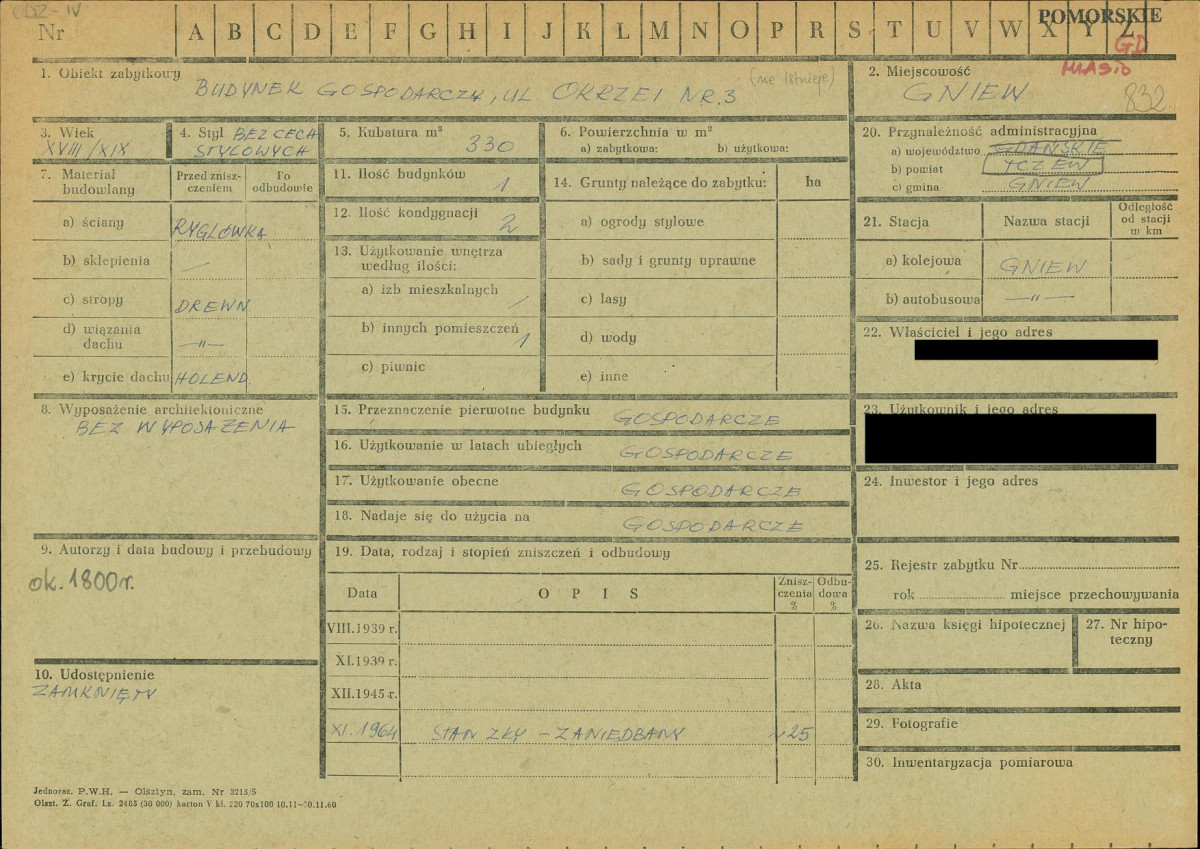 ODZ-IV
Nr A B C D E F G H I J K Ł M N O P R S T U V W X Y Z
POMORSKIE
GD
MIASTO
1. Obiekt zabytkowy
BUDYNEK GOSPODARCZY, UL. OKRZEI NR. 3 (nie istnieje)
2. Miejscowość
GNIEW 832
3. Wiek
XVIII/XIX
4. Styl BEZ CECH
STYLOWYCH
5. Kubatura m³
330
6. Powierzchnia w m²
a) zabytkowa: b) użytkowa:
7. Materiał budowlany
Przed znisz-
czeniem
Po
odbudowie
a) ściany RYGLÓWKA
b) sklepienia —
c) stropy DREWN
d) wiązania
dachu —"—
e) krycie dachu HOLEND.
8. Wyposażenie architektoniczne
BEZ WYPOSAŻENIA
9. Autorzy i data budowy i przebudowy
ok. 1800 r.
10. Udostępnienie
ZAMKNIĘTY
11. Ilość budynków
1
12. Ilość kondygnacji
2
13. Użytkowanie wnętrza
według ilości:
a) izb mieszkalnych
/
b) innych pomieszczeń
1
c) piwnic
14. Grunty należące do zabytku: ha
a) ogrody stylowe
b) sady i grunty uprawne
c) lasy
d) wody
e) inne
15. Przeznaczenie pierwotne budynku GOSPODARCZE
16. Użytkowanie w latach ubiegłych GOSPODARCZE
17. Użytkowanie obecne GOSPODARCZE
18. Nadaje się do użycia na GOSPODARCZE
19. Data, rodzaj i stopień zniszczeń i odbudowy
Data OPIS
Znisz-
czenia
%
Odbu-
dowa
%
VIII.1939 r.
XI.1939 r.
XII.1945 r.
XI.1964 STAN ZŁY - ZANIEDBANY ~25
20. Przynależność administracyjna
a) województwo GDAŃSKIE
b) powiat TCZEW
c) gmina GNIEW
21. Stacja Nazwa stacji
Odległość
od stacji
w km
a) kolejowa GNIEW
b) autobusowa —"—
22. Właściciel i jego adres
23. Użytkownik i jego adres
24. Inwestor i jego adres
25. Rejestr zabytku Nr
rok miejsce przechowywania
26. Nazwa księgi hipotecznej
27. Nr hipo-
teczny
28. Akta
29. Fotografie
30. Inwentaryzacja pomiarowa
Jednoraz. P.W.H. — Olsztyn, zam. Nr 3215/S
Olszt. Z. Graf. Lz. 2485 (30 000) karton V kl. 220 70x100 10.11—30.11.60